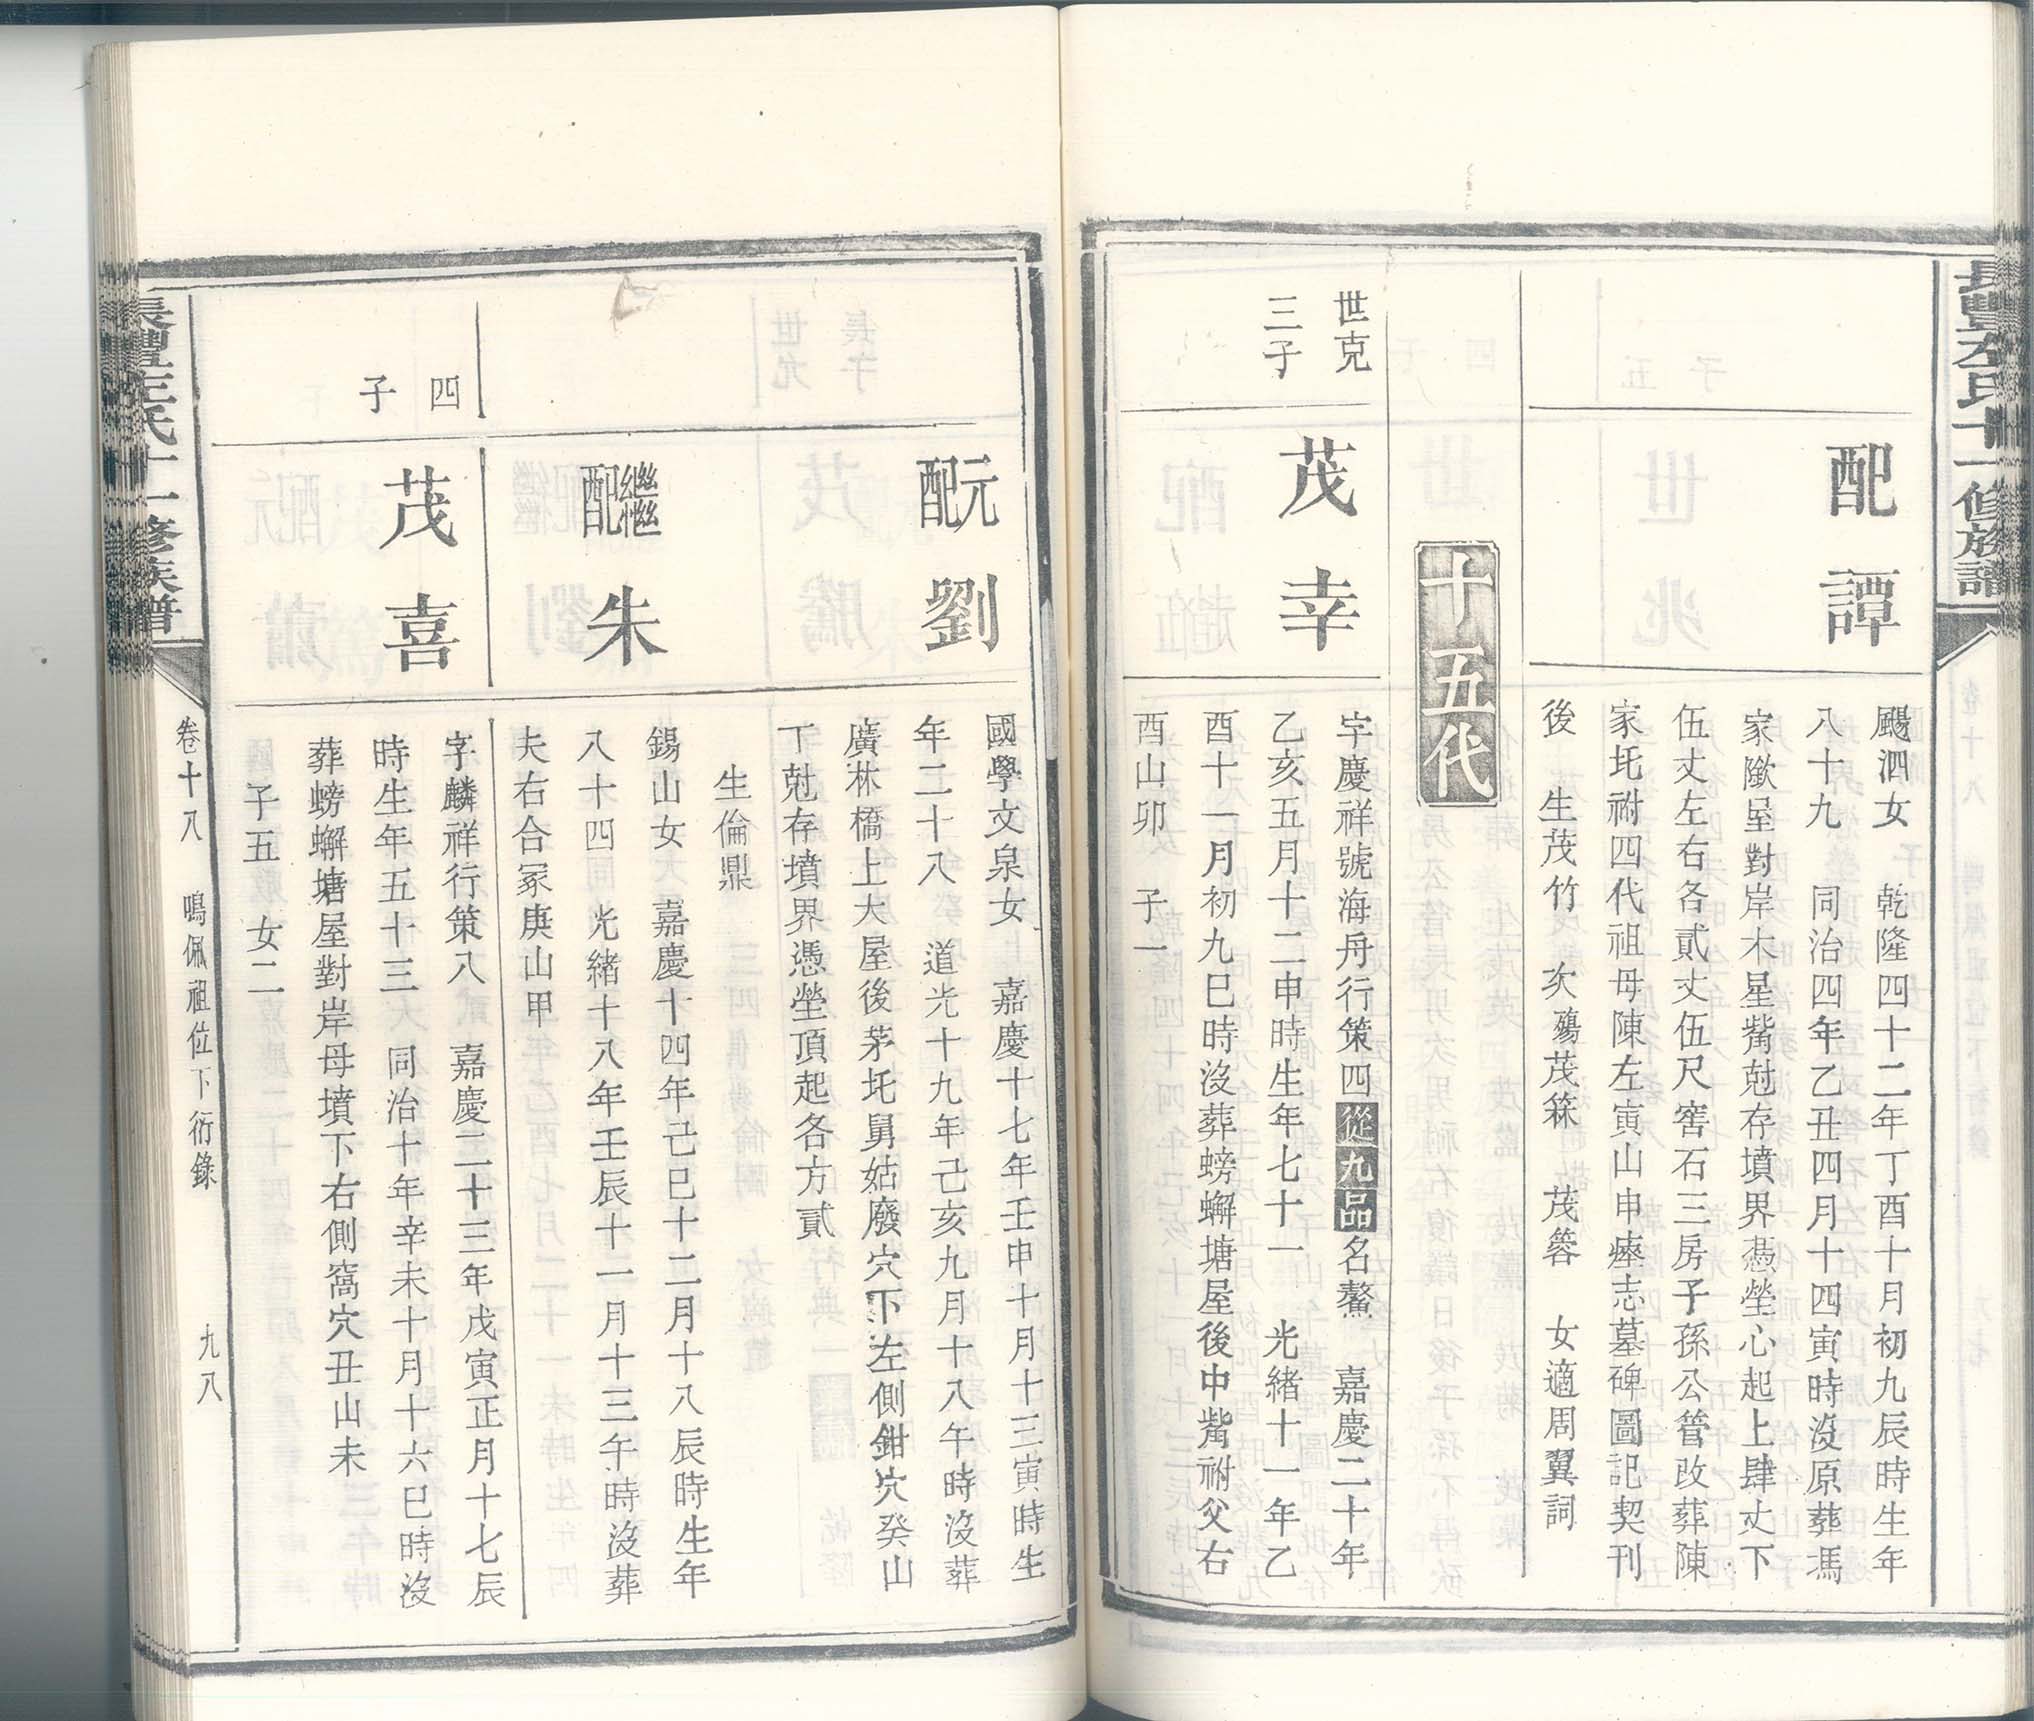 長豐左氏十一修族譜
配譚
颺泗女　乾隆四十二年丁酉十月初九辰時生年
八十九　同治四年乙丑四月十四寅時沒原葬馮
家隞屋對岸木星觜尅存墳界憑塋心起上肆丈下
伍丈左右各貳丈伍尺窖石三房子孫公管改葬陳
家圫祔四代祖母陳左寅山申瘞志墓碑圖記契刊
後　生茂竹　次殤茂箖　茂簩　女適周翼詞
十五代
世克
三子
茂幸
字慶祥號海舟行策四從九品名鰲　嘉慶二十年
乙亥五月十二申時生年七十一　光緒十一年乙
酉十一月初九巳時沒葬螃蠏塘屋後中觜祔父右
酉山卯　子一
元配劉
國學文泉女　嘉慶十七年壬申十月十三寅時生
年二十八　道光十九年己亥九月十八午時沒葬
廣林橋上大屋後茅圫舅姑廢穴下左側鉗穴癸山
丁尅存墳界憑塋頂起各方貳
生倫鼎
繼配朱
錫山女　嘉慶十四年己巳十二月十八辰時生年
八十四　光緒十八年壬辰十一月十三午時沒葬
夫右合冢庚山甲
四
子
茂喜
字麟祥行策八　嘉慶二十三年戊寅正月十七辰
時生年五十三　同治十年辛未十月十六巳時沒
葬螃蠏塘屋對岸母墳下右側窩穴丑山未
子五　女二
長豐左氏十一修族譜
卷十八　鳴佩祖位下衍錄　九八